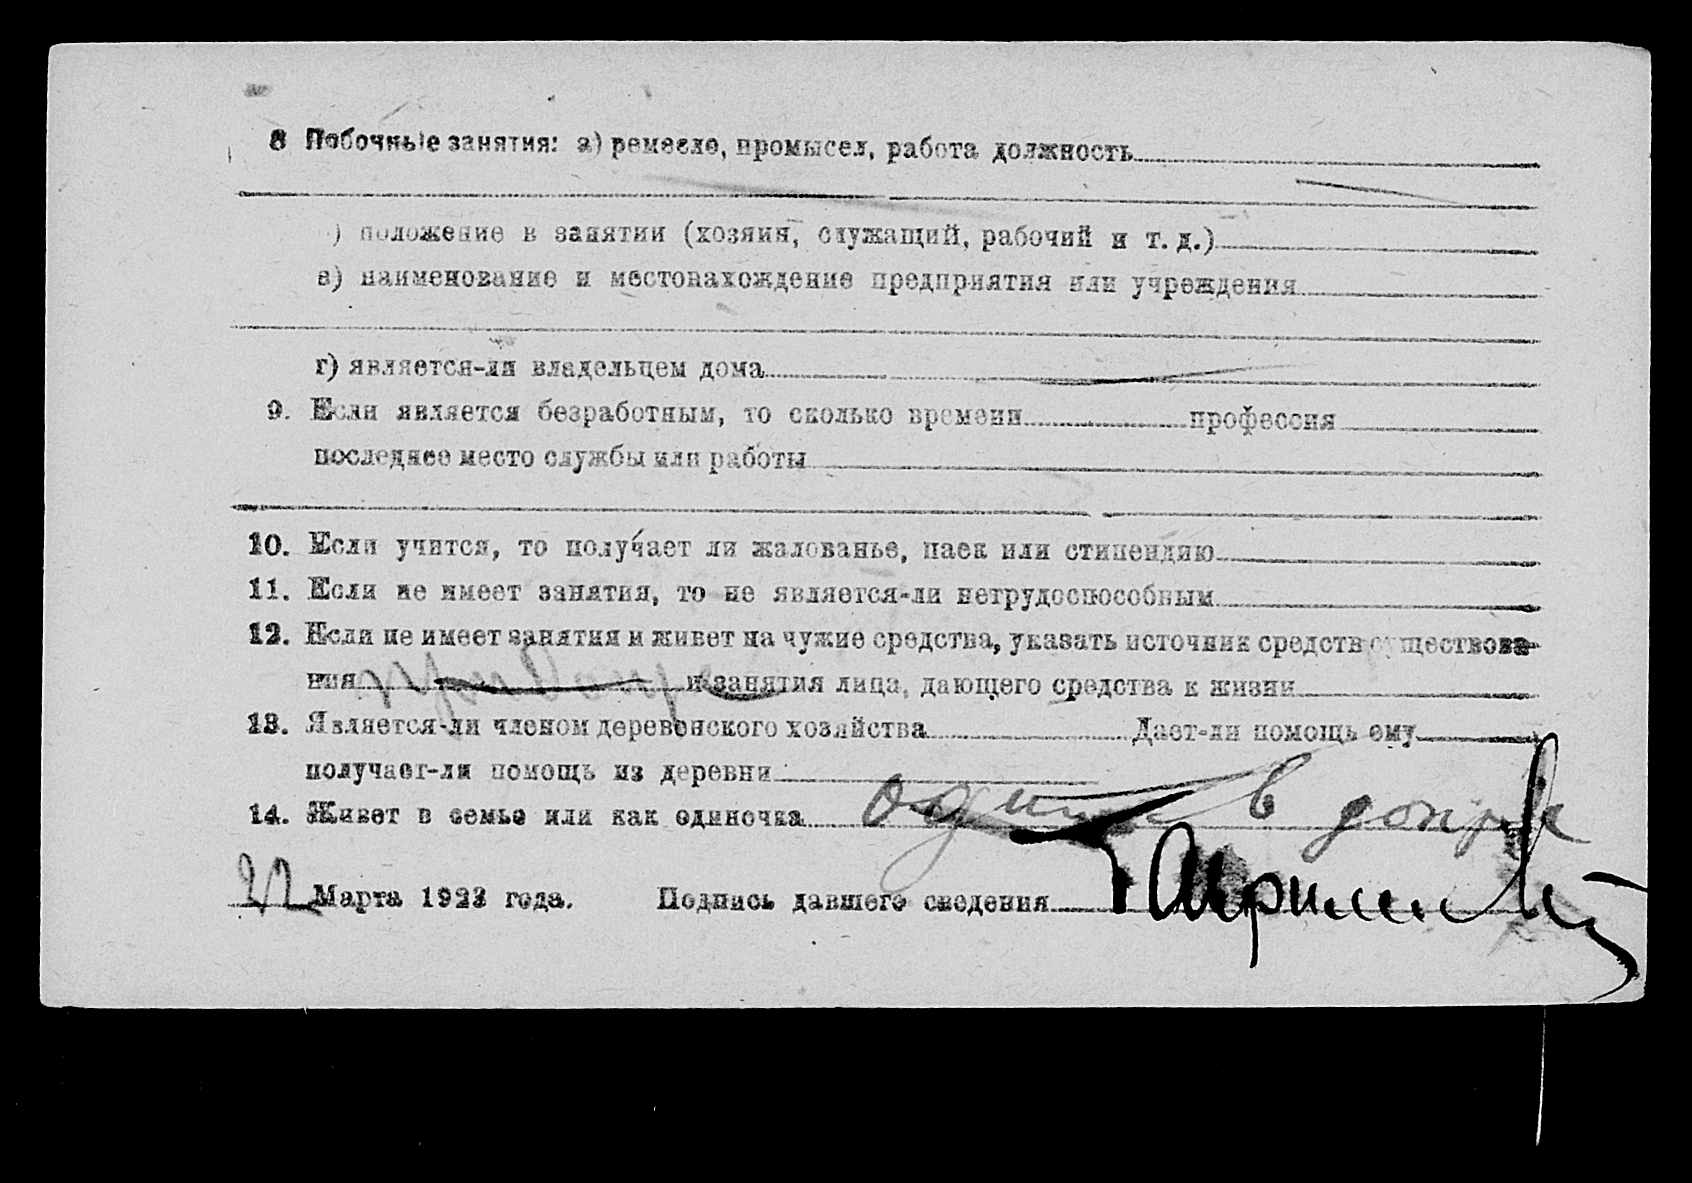 8 Побочные занятия: а) ремесло, промысел, работа должность
) положение в занятии (хозяин, служащий, рабочий и т. д.)
в) наименование и местонахождение предприятия или учреждения
г) является-ли владельцем дома
9. Если является безработным, то сколько времени профессия
последнее место службы или работы
10. Если учится, то получает ли жалованье, паек или стипендию
11. Если не имеет занятия, то не является-ли нетрудоспособным
12. Если не имеет занятия и живет на чужие средства, указать источник средств существова-
ния и занятия лица, дающего средства к жизни
13. Является-ли членом деревенского хозяйства Дает-ли помощь ему
получает-ли помощь из деревни
14. Живет в семье или как одиночка один в допре
22 Марта 1923 года. Подпись давшего сведения